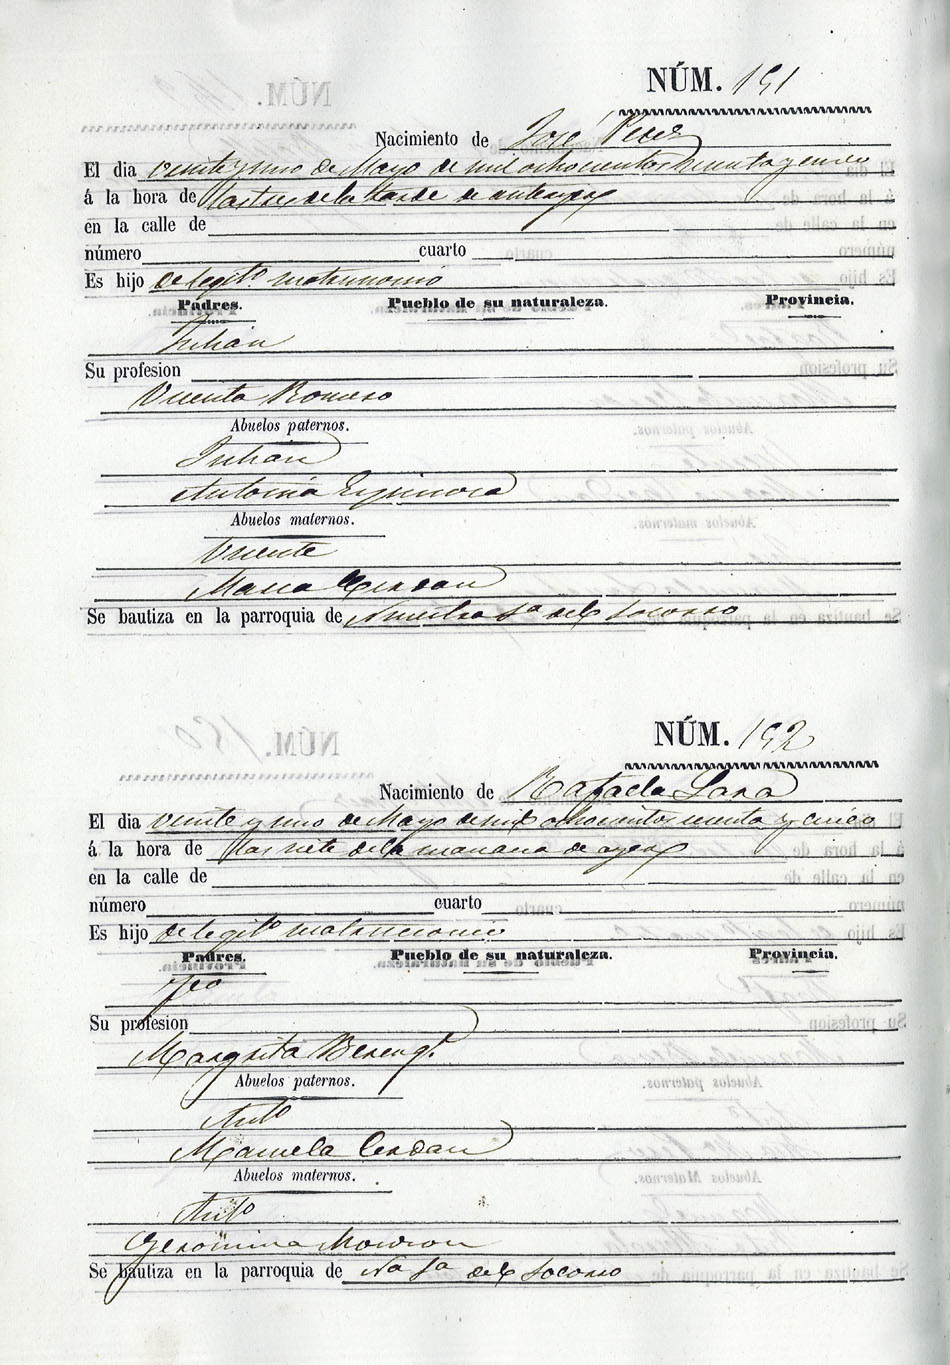 NÚM. 191
Nacimiento de José Perez
El dia veinte y uno de Mayo de mil ochocientos setenta y cinco
á la hora de las tres de la tarde de anteayer
en la calle de
número cuarto
Es hijo de legit.º matrimonio
Padres. Pueblo de su naturaleza. Provincia.
Julian
Su profesion
Vicenta Romero
Abuelos paternos.
Julian
Antonia Espinosa
Abuelos maternos.
Vicente
Maria Cerdan
Se bautiza en la parroquia de Nuestra Sª del Socorro
NÚM. 192
Nacimiento de Rafaela Lara
El dia veinte y uno de Mayo de mil ochocientos setenta y cinco
á la hora de las siete de la mañana de ayer
en la calle de
número cuarto
Es hijo de legit.º matrimonio
Padres. Pueblo de su naturaleza. Provincia.
Su profesion
Margarita Bereng.
Abuelos paternos.
Antº
Manuela Cerdan
Abuelos maternos.
Antº
Geronima
Se bautiza en la parroquia de Nª Sª del Socorro